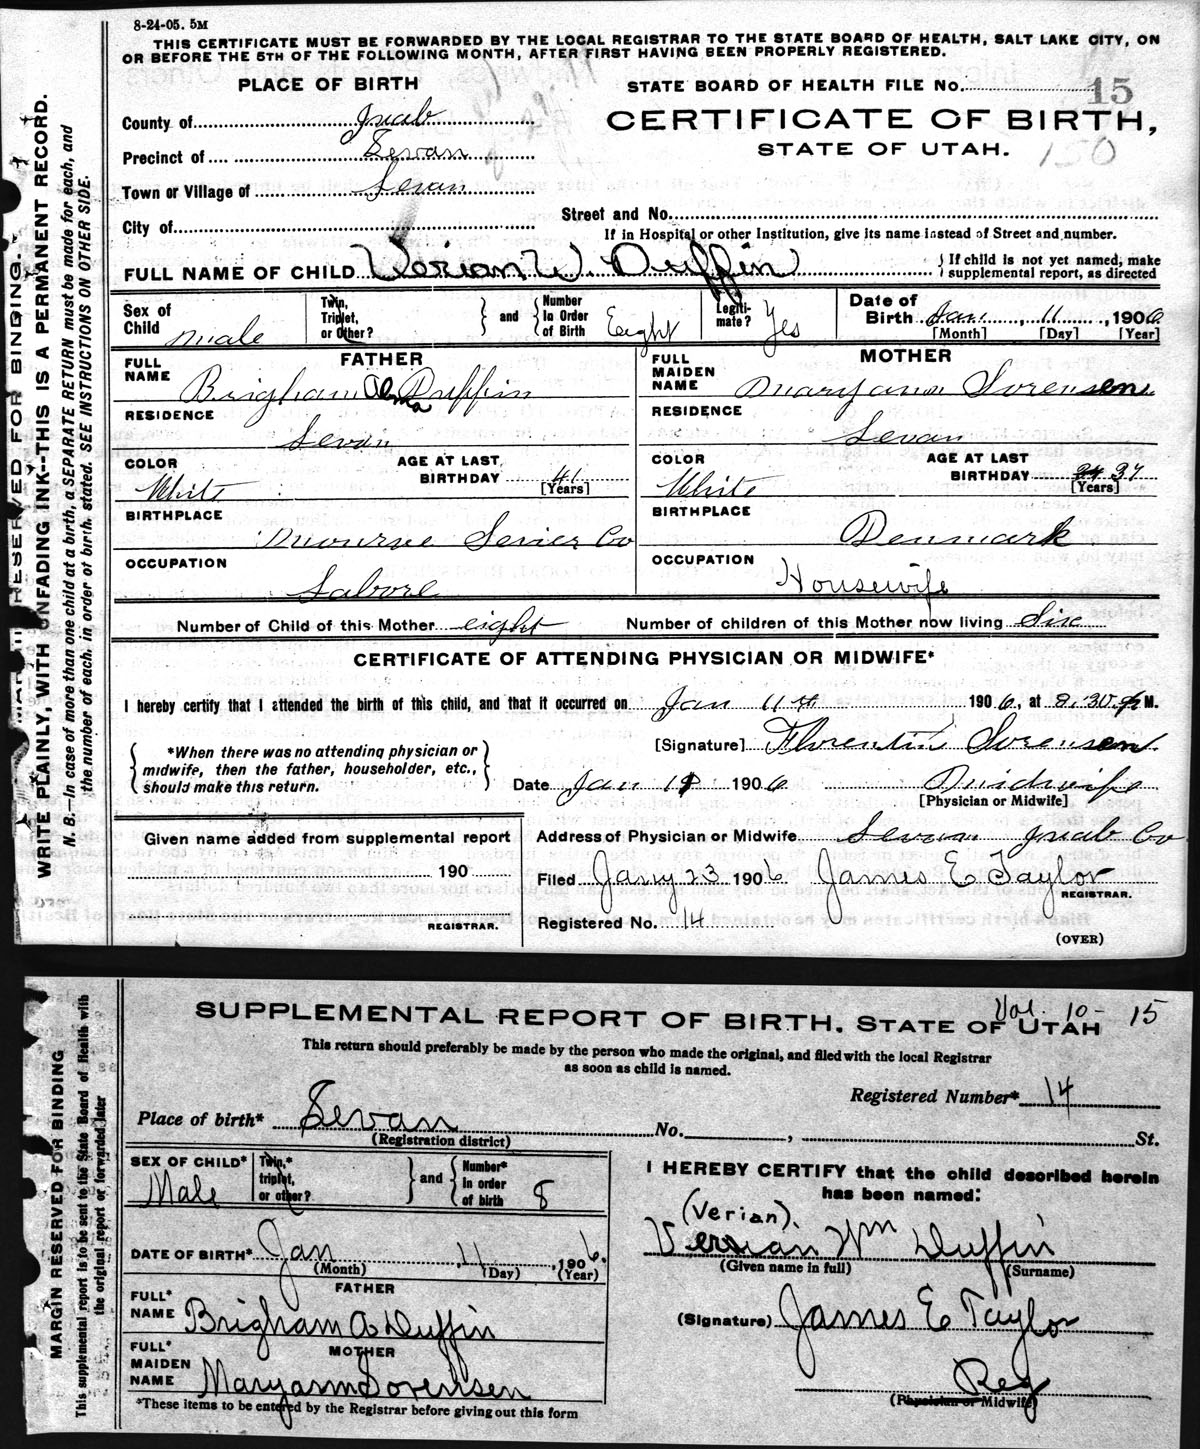 8-24-05. 5M
THIS CERTIFICATE MUST BE FORWARDED BY THE LOCAL REGISTRAR TO THE STATE BOARD OF HEALTH, SALT LAKE CITY, ON
OR BEFORE THE 5TH OF THE FOLLOWING MONTH, AFTER FIRST HAVING BEEN PROPERLY REGISTERED.
PLACE OF BIRTH
STATE BOARD OF HEALTH FILE No. 15
County of Juab
CERTIFICATE OF BIRTH,
Precinct of Levan
STATE OF UTAH. 150
Town or Village of Levan
Street and No.
City of
If in Hospital or other Institution, give its name instead of Street and number.
FULL NAME OF CHILD Verian W. Duffin { If child is not yet named, make supplemental report, as directed
Sex of Child male
Twin, Triplet, or Other? } and { Number in Order of Birth Eight
Legitimate? Yes
Date of Birth Jan 11, 1906
[Month] [Day] [Year]
FATHER
FULL NAME Brigham Alma Duffin
RESIDENCE Levan
COLOR White
AGE AT LAST BIRTHDAY 41 [Years]
BIRTHPLACE Monroe Sevier Co
OCCUPATION Labore
MOTHER
FULL MAIDEN NAME Maryann Sorensen
RESIDENCE Levan
COLOR White
AGE AT LAST BIRTHDAY 37 [Years]
BIRTHPLACE Denmark
OCCUPATION Housewife
Number of Child of this Mother eight Number of children of this Mother now living Six
CERTIFICATE OF ATTENDING PHYSICIAN OR MIDWIFE*
I hereby certify that I attended the birth of this child, and that it occurred on Jan 11th 1906, at 8.30 M.
{ *When there was no attending physician or midwife, then the father, householder, etc., should make this return. }
[Signature] Florentin Sorensen
Date Jan 1906 Midwife
[Physician or Midwife]
Given name added from supplemental report
190
REGISTRAR.
Address of Physician or Midwife Levan Juab Co
Filed Jany 23 1906 James E Taylor
REGISTRAR.
Registered No. 14
(OVER)
MARGIN RESERVED FOR BINDING.
WRITE PLAINLY, WITH UNFADING INK--THIS IS A PERMANENT RECORD.
N. B.—In case of more than one child at a birth, a SEPARATE RETURN must be made for each, and
the number of each, in order of birth, stated. SEE INSTRUCTIONS ON OTHER SIDE.
SUPPLEMENTAL REPORT OF BIRTH. STATE OF UTAH Vol. 10- 15
This return should preferably be made by the person who made the original, and filed with the local Registrar
as soon as child is named.
Registered Number* 14
Place of birth* Levan No. , St.
(Registration district)
SEX OF CHILD* Male
Twin,* triplet, or other? } and { Number* in order of birth 8
DATE OF BIRTH* Jan 11, 1906.
(Month) (Day) (Year)
FATHER
FULL* NAME Brigham A Duffin
MOTHER
FULL* MAIDEN NAME Maryann Sorensen
*These items to be entered by the Registrar before giving out this form
I HEREBY CERTIFY that the child described herein
has been named:
(Verian).
Verian Wm Duffin
(Given name in full) (Surname)
(Signature) James E Taylor
Reg
(Physician or Midwife)
MARGIN RESERVED FOR BINDING
This supplemental report is to be sent to the State Board of Health with
the original report or forwarded later